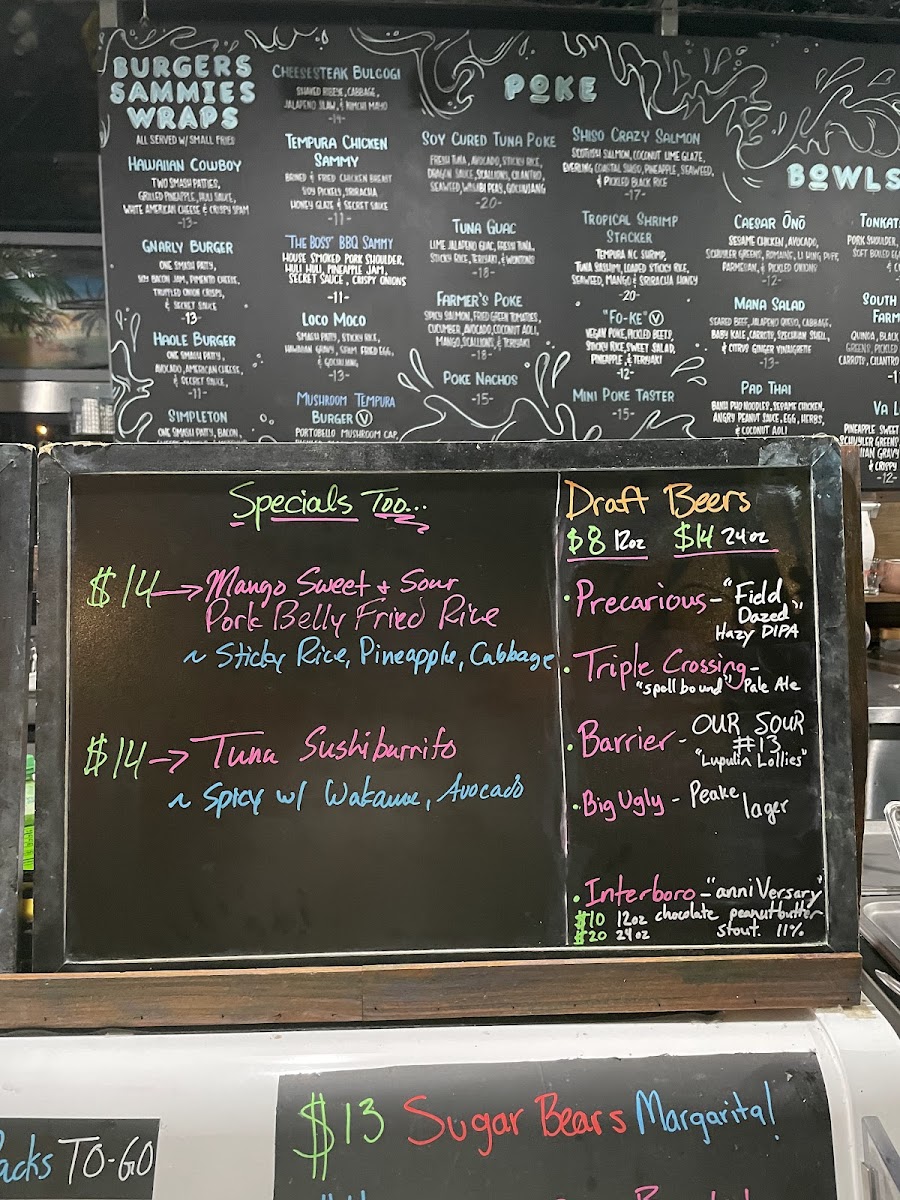 BURGERS
SAMMIES
WRAPS
ALL SERVED W/ SMALL FRIES
HAWAIIAN COWBOY
TWO SMASH PATTIES,
GRILLED PINEAPPLE, HULI SAUCE,
WHITE AMERICAN CHEESE & CRISPY SPAM
-13-
GNARLY BURGER
ONE SMASH PATTY,
BACON JAM, PIMENTO CHEESE,
TRUFFLED ONION CRISPS,
& SECRET SAUCE
-13-
HAOLE BURGER
ONE SMASH PATTY,
AVOCADO, AMERICAN CHEESE,
& SECRET SAUCE,
-11-
SIMPLETON
ONE SMASH PATTY, BACON,
CHEESESTEAK BULGOGI
SHAVED RIBEYE, CABBAGE,
JALAPENO SLAW, & KIMCHI MAYO
-14-
TEMPURA CHICKEN
SAMMY
BRINED & FRIED CHICKEN BREAST
SOY PICKELY, SRIRACHA
HONEY GLAZE & SECRET SAUCE
-11-
THE BOSS' BBQ SAMMY
HOUSE SMOKED PORK SHOULDER,
HULI HULI, PINEAPPLE JAM,
SECRET SAUCE, CRISPY ONIONS
-11-
LOCO MOCO
SMASH PATTY, STICKY RICE,
HAWAIIAN GRAVY, SPAM FRIED EGG,
& GOCHUJANG
-13-
MUSHROOM TEMPURA
BURGER V
PORTOBELLO MUSHROOM CAP,
POKE
SOY CURED TUNA POKE
FRESH TUNA, AVOCADO, STICKY RICE,
DRAGON SAUCE, SCALLIONS, CILANTRO,
SEAWEED, WASABI PEAS, GOCHUJANG
-20-
TUNA GUAC
LIME JALAPENO GUAC, FRESH TUNA,
STICKY RICE, TERIYAKI, & WONTONS
-18-
FARMER'S POKE
SPICY SALMON, FRIED GREEN TOMATOES,
CUCUMBER, AVOCADO, COCONUT AOLI,
MANGO, SCALLIONS, & TERIYAKI
-18-
POKE NACHOS
-15-
SHISO CRAZY SALMON
SCOTTISH SALMON, COCONUT LIME GLAZE,
COASTAL SHISO, PINEAPPLE, SEAWEED,
& PICKLED BLACK RICE
-17-
TROPICAL SHRIMP
STACKER
TEMPURA NC SHRIMP,
TUNA SASHIMI, LOADED STICKY RICE,
SEAWEED, MANGO & SRIRACHA HONEY
-20-
"FO-KE" V
VEGAN POKE, PICKLED BEETS,
STICKY RICE, SWEET SALAD,
PINEAPPLE, & TERIYAKI
-12-
MINI POKE TASTER
-15-
BOWLS
CAESAR ŌNŌ
SESAME CHICKEN, AVOCADO,
SCHUYLER GREENS, ROMAINE, LI HING PUFF,
PARMESAN, & PICKLED ONIONS
-12-
MANA SALAD
SEARED BEEF, JALAPENO QUESO, CABBAGE,
BABY KALE, CARROTS, SZECHUAN SHELL,
& CITRUS GINGER VINAIGRETTE
-13-
PAD THAI
BANH PHO NOODLES, SESAME CHICKEN,
ANGRY PEANUT SAUCE, EGG, HERBS,
& COCONUT AOLI
TONKAT
PORK SHOULDER,
SOFT BOILED EGG
SOUTH
FARM
QUINOA, BLACK
GREENS, PICKLED
CARROTS, CILANTRO
VA L
PINEAPPLE SWEET
SCHUYLER GREENS
IAN GRAVY
& CRISPY
-12-
Specials Too...
$14 → Mango Sweet & Sour
Pork Belly Fried Rice
~ Sticky Rice, Pineapple, Cabbage
$14 → Tuna Sushiburrito
~ Spicy w/ Wakame, Avocado
Draft Beers
$8 12oz $14 24oz
• Precarious - "Field
Dazed"
Hazy DIPA
• Triple Crossing -
"spellbound" Pale Ale
• Barrier - OUR SOUR
#13
"Lupulin Lollies"
• Big Ugly - Peake
lager
• Interboro - "anniVersary"
$10 12oz chocolate peanutbutter
$20 24oz stout. 11%
acks TO-GO
$13 Sugar Bears Margarita!